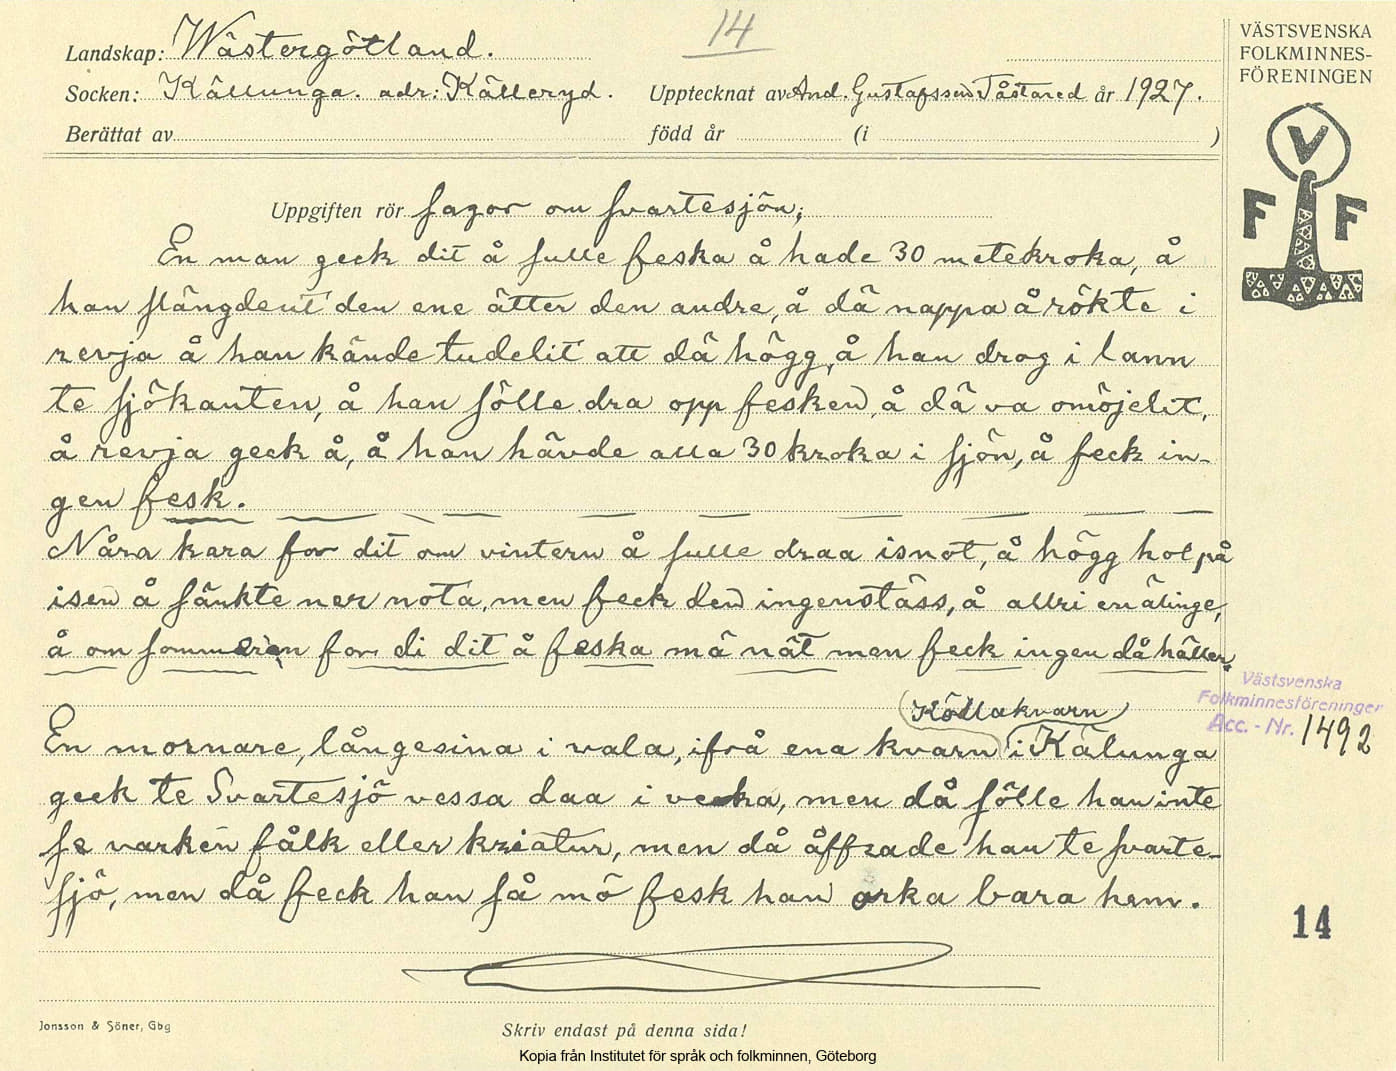 14
VÄSTSVENSKA
FOLKMINNES-
FÖRENINGEN
V
F F
Landskap: Wästergötland.
Socken: Källunga. adr: Källeryd. Upptecknat av And. Gustafsson Tåstared år 1927.
Berättat av född år (i )
Uppgiften rör sagor om svartesjön;
En man geck dit å sulle feska å hade 30 metekroka, å
han slängde ut den ene ätter den andre, å dä nappa å rökte i
revja å han kände tudelit att dä högg, å han drog i lann
te sjökanten, å han sölle dra opp fesken, å dä va omöjelit,
å revja geck å, å han hävde alla 30 kroka i sjön, å feck in-
gen fesk.
Nåra kara for dit om vintern å sulle draa isnot, å högg hol på
isen å sänkte ner nota, men feck den ingenstäss, å allri en älinge,
å om sommeren for di dit å feska mä nät men feck ingen då häller.
(Köllakvarn)
En mornare, långesina i vala, ifrå ena kvarn i Kälunga
geck te Svartesjö vessa daa i vecka, men då sölle han inte
se varken fålk eller kreatur, men då åffrade han te svarte-
sjö, men då feck han så mö fesk han orka bara hem.
Västsvenska
Folkminnesföreningen
Acc. - Nr. 1492
14
Jonsson & Söner, Gbg
Skriv endast på denna sida!
Kopia från Institutet för språk och folkminnen, Göteborg